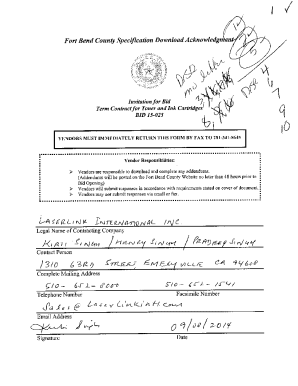 Fort Bend County Specification Download Acknowledgment
Invitation for Bid
Term Contract for Toner and Ink Cartridges
BID 15-025
VENDORS MUST IMMEDIATELY RETURN THIS FORM BY FAX TO 281-341-8645
Vendor Responsibilities:
Vendors are responsible to download and complete any addendums.
(Addendums will be posted on the Fort Bend County Website no later than 48 hours prior to
Bid Opening)
Vendors will submit responses in accordance with requirements stated on cover of document.
Vendors may not submit responses via email or fax.
LASERLINK INTERNATIONAL INC
Legal Name of Contracting Company
KIRTI SINGH / MANOJ SINGH / PRADEEP SINGH
Contact Person
1310 63RD STREET EMERYVILLE CA 94608
Complete Mailing Address
510-652-8000 510-652-1541
Telephone Number Facsimile Number
Email Address
09/08/2014
Signature Date